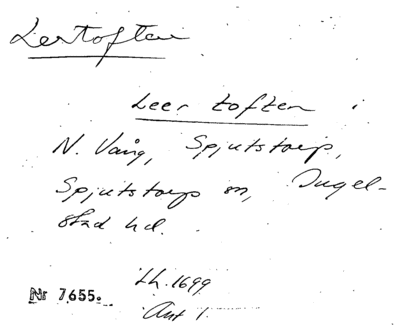 Lertoften
Leer toften i
N. Vång, Spjutstorp,
Spjutstorps sn, Ingel-
stad hd.
Lh. 1699
Akt 1.
Nr 7655.